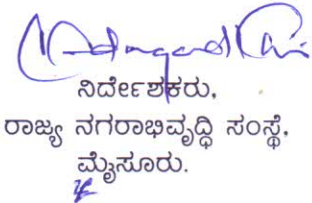 ನಿರ್ದೇಶಕರು,
ರಾಜ್ಯ ನಗರಾಭಿವೃದ್ಧಿ ಸಂಸ್ಥೆ,
ಮೈಸೂರು.